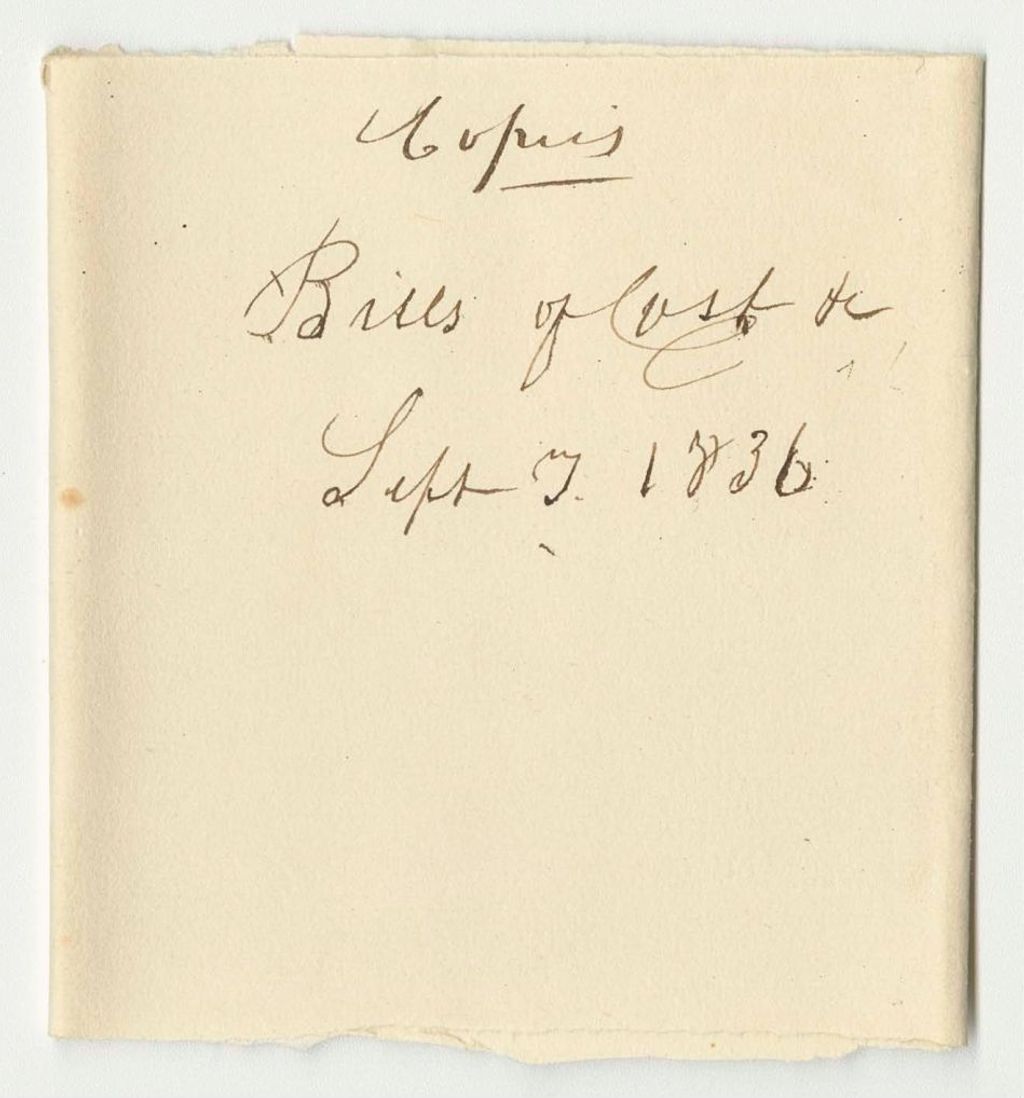 Copies
Bills of Cost &c
Sept 7. 1836